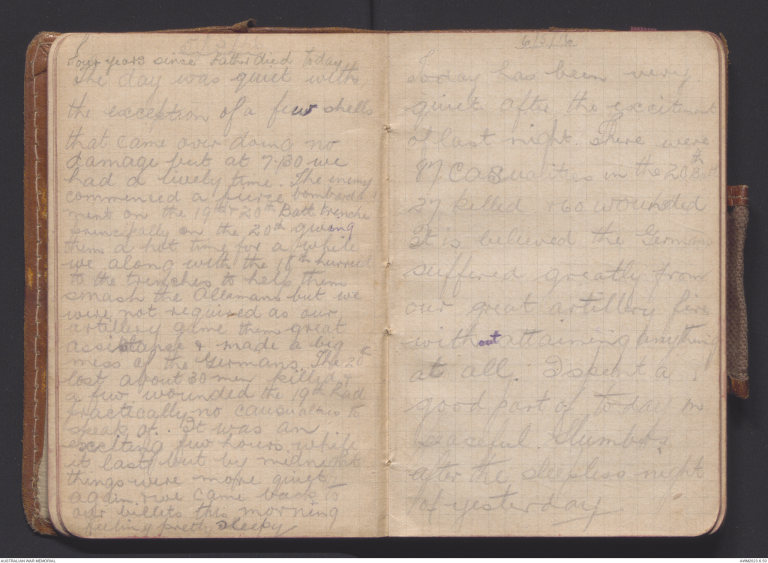 5/5/16
Four years since Father died today
The day was quiet with
the exception of a few shells
that came over doing no
damage but at 7.30 we
had a lively time. The enemy
commenced a fierce bombard
ment on the 19th & 20th Batt trenches
principally on the 20th giving
them a hot time for a while
we along with the 18th hurried
to the trenches to help them
smash the Allemans but we
were not required as our
artillery gave them great
assistance & made a big
mess of the Germans. The 20th
lost about 30 men killed &
a few wounded the 19th had
practically no casualties to
speak of. It was an
exciting few hours while
it last but by midnight
things were more quiet
again & we came back to
our billets this morning
feeling pretty sleepy
6/5/16
Today has been very
quiet after the excitement
of last night. There were
87 casualities in the 20th
27 killed & 60 wounded
It is believed the Germans
suffered greatly from
our great artillery fire
without attaining anything
at all. I spent a
good part of to-day in
peaseful slumbers
after the sleepless night
of yesterday
AUSTRALIAN WAR MEMORIAL